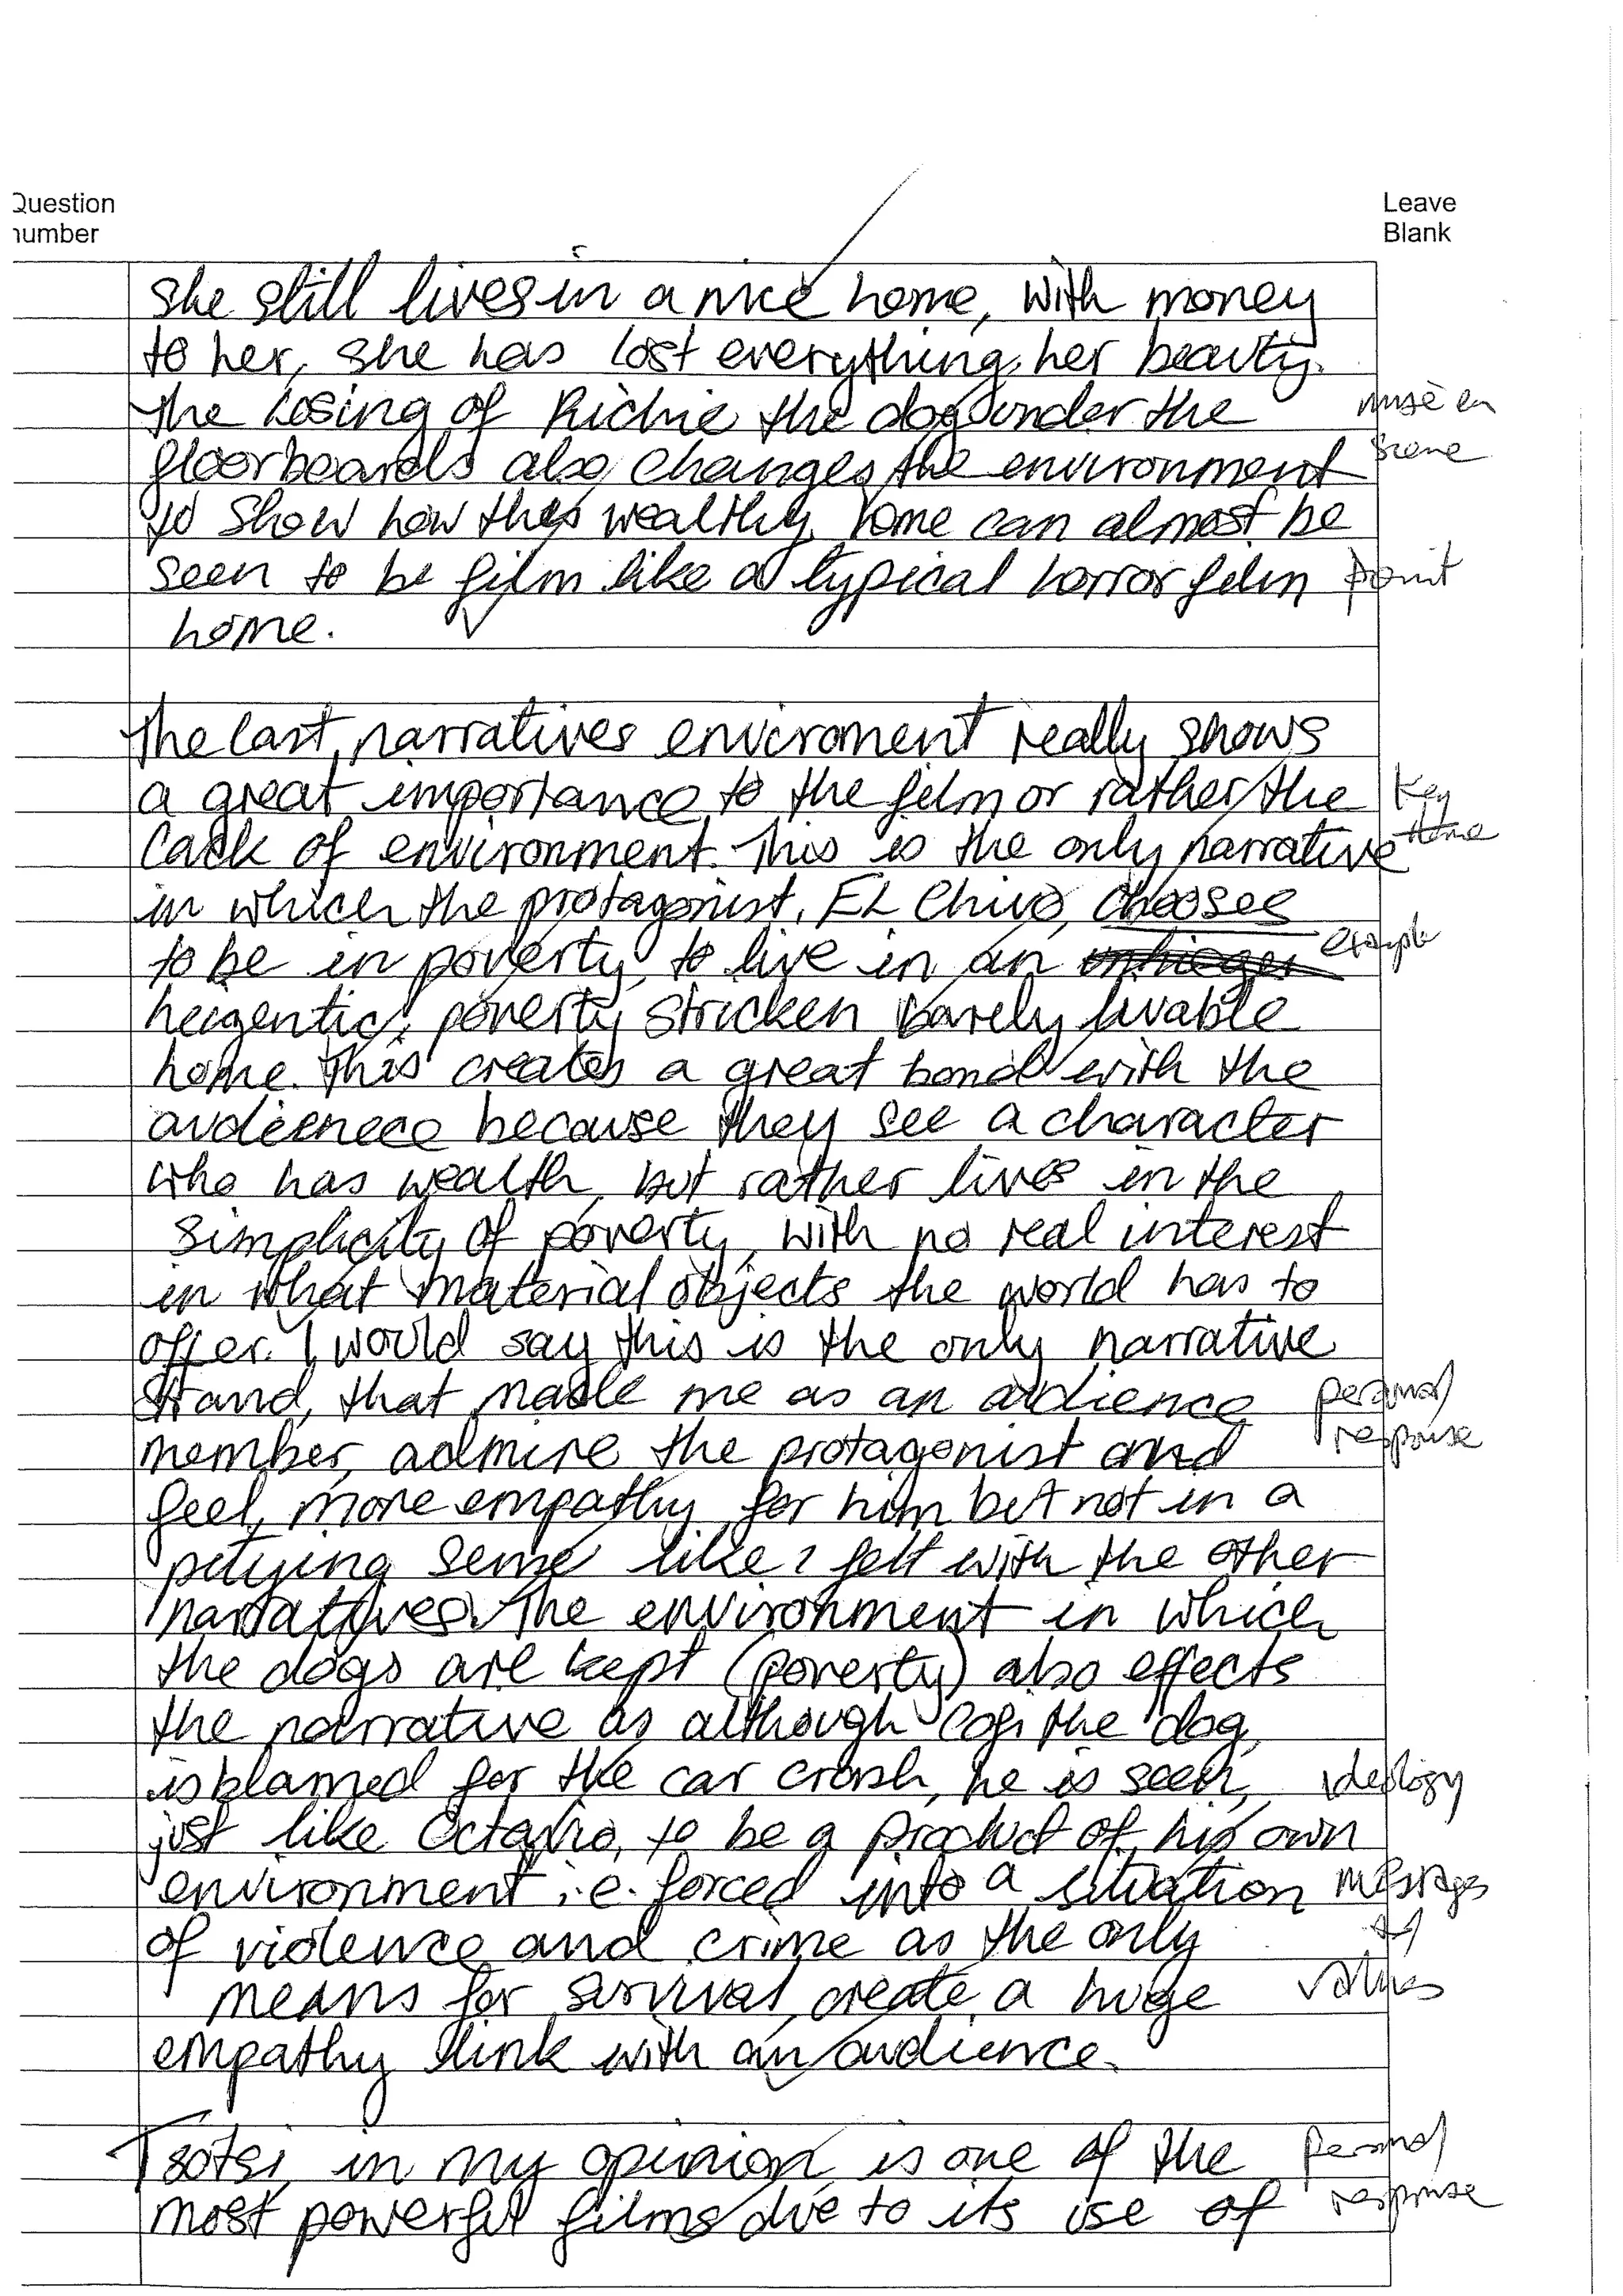 Question
number
Leave
Blank
she still lives in a nice home, with money
to her, she has lost everything, her beauty.
The losing of Richie the dog under the
mise en
floorboards also changes the environment
scene
to show how this wealthy home can almost be
seen to be film like a typical horror film
point
home.
The last narratives enviroment really shows
a great importance to the film or rather the
key
lack of environment. This is the only narrative
in which the protagonist, EL Chivo, chooses
to be in poverty, to live in an
example
heigentic, poverty stricken barely livable
home. This creates a great bond with the
audienece because they see a character
who has wealth, but rather lives in the
simplicity of poverty, with no real interest
in what material objects the world has to
offer. I would say this is the only narrative
strand, that made me as an audience
personal
member, admire the protagonist and
response
feel, more empathy for him but not in a
pitying sense like I felt with the other
narratives. The environment in which
the dogs are kept (poverty) also effects
the narrative as although Cofi the dog,
is blamed for the car crash, he is seen,
ideology
just like Octavio, to be a product of his own
environment i.e. forced into a situation
messages
of violence and crime as the only
means for survival, create a huge
values
empathy link with an audience.
Tsotsi, in my opinion, is one of the
personal
most powerful films due to its use of
response